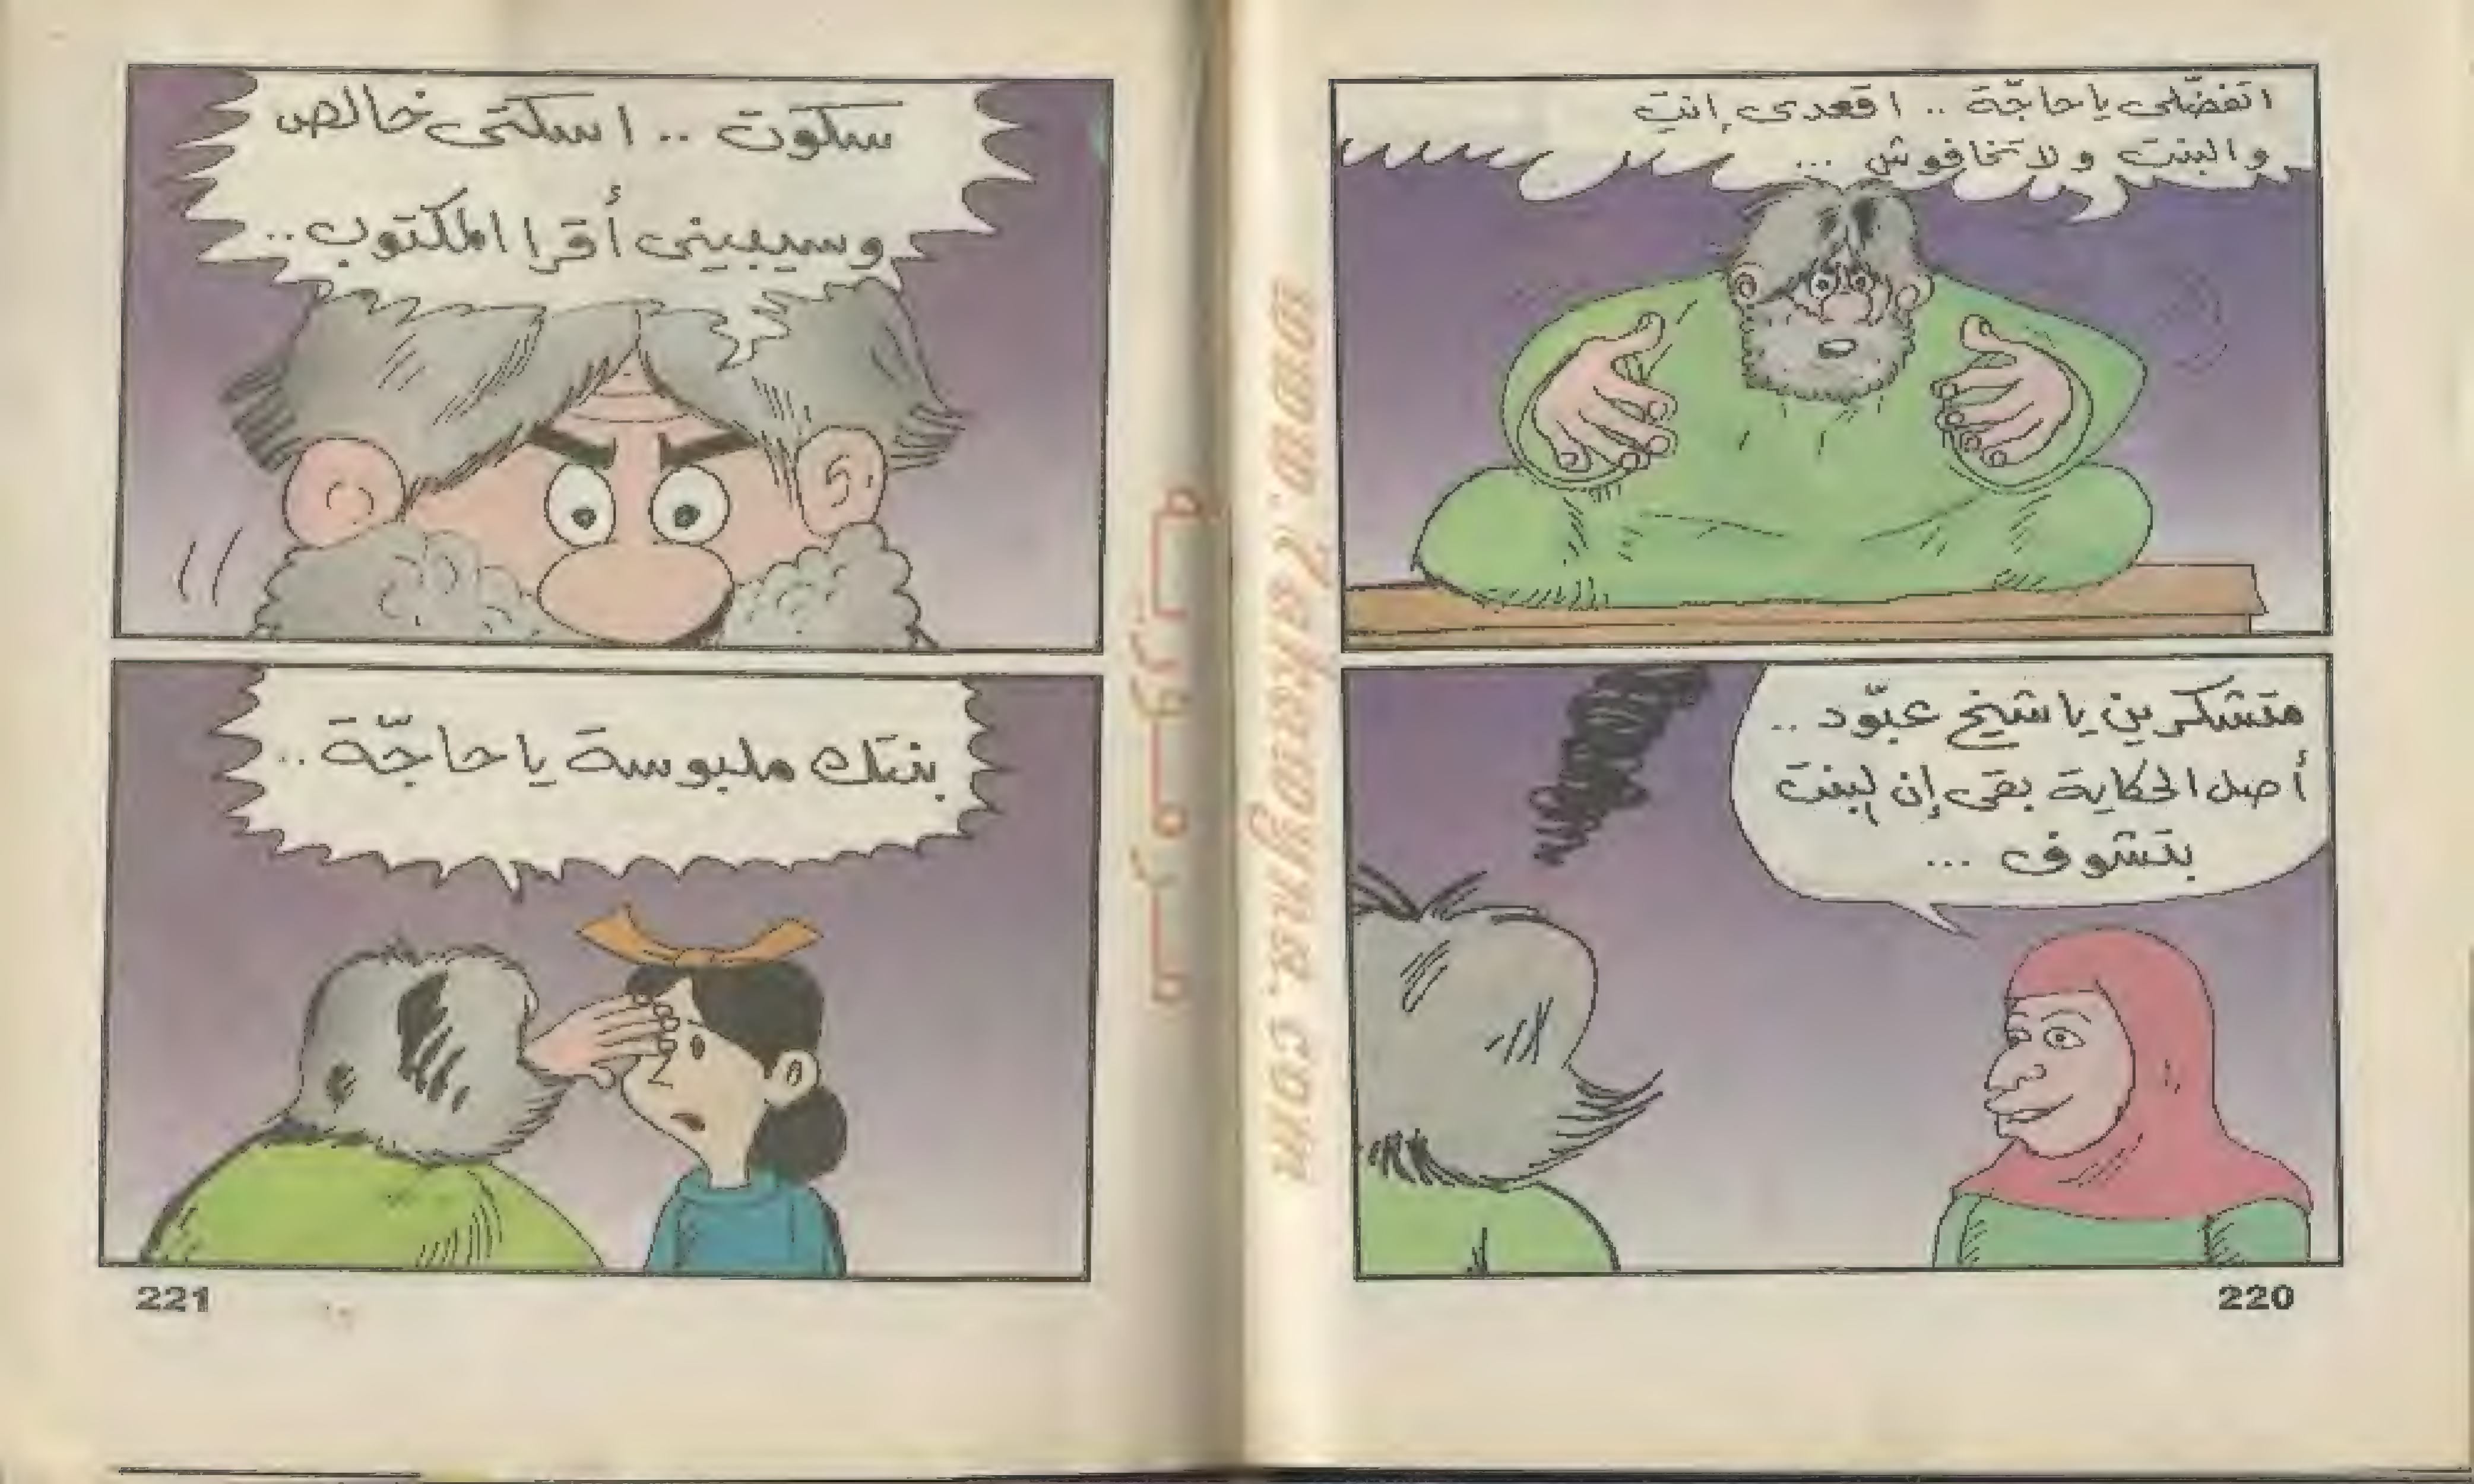 اتفضّلى ياحاجّة .. اقعدى إنتِ
والبنت ولا تخافوش ...
متشكرين ياشيخ عبّود ..
أصل الحكاية بقى إن لبنت
بتشوف ...
220
سكوت .. اسكتى خالص
وسيبينى أقرا المكتوب ..
بنتك ملبوسة ياحاجّة ..
221